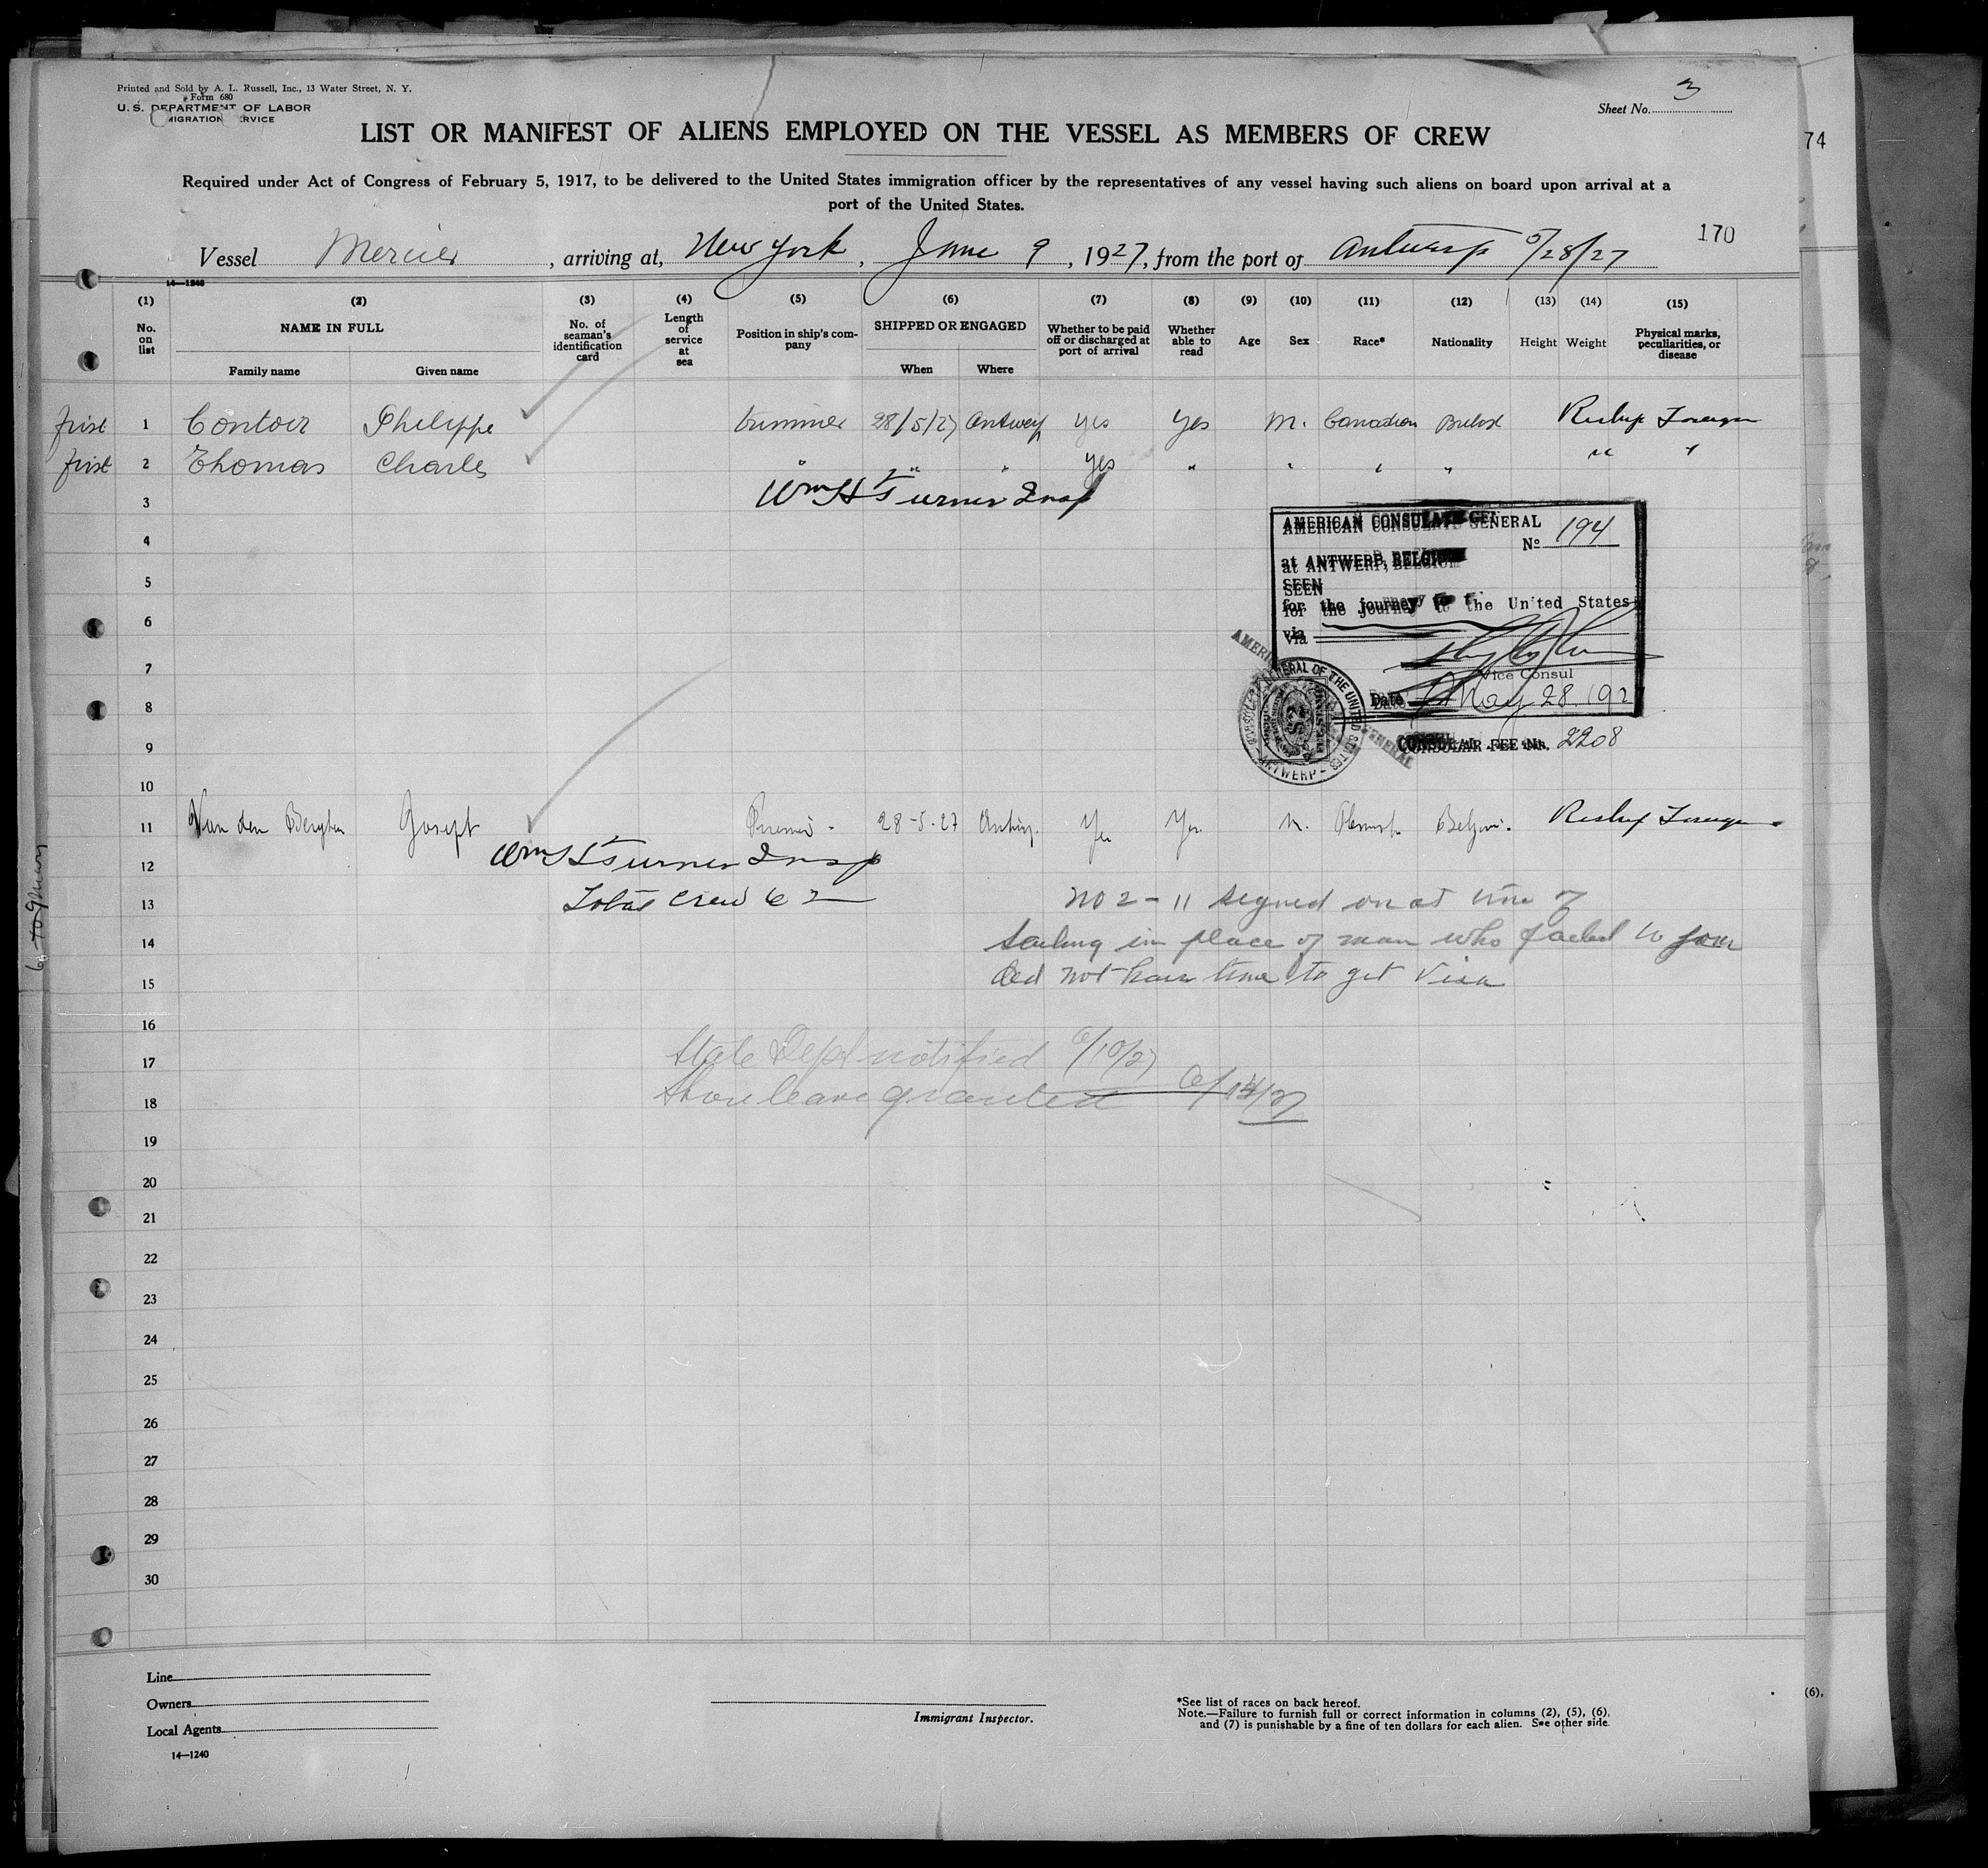 Printed and Sold by A. L. Russell, Inc., 13 Water Street, N. Y.
Form 680
U. S. DEPARTMENT OF LABOR
MIGRATION RVICE
Sheet No. 3
LIST OR MANIFEST OF ALIENS EMPLOYED ON THE VESSEL AS MEMBERS OF CREW
74
Required under Act of Congress of February 5, 1917, to be delivered to the United States immigration officer by the representatives of any vessel having such aliens on board upon arrival at a
port of the United States.
170
Vessel Mercier, arriving at, New York, June 9, 1927, from the port of Antwerp 5/28/27
14—1240
(1) (2) (3) (4) (5) (6) (7) (8) (9) (10) (11) (12) (13) (14) (15)
No. on list
NAME IN FULL
Family name Given name
No. of seaman's identification card
Length of service at sea
Position in ship's company
SHIPPED OR ENGAGED
When Where
Whether to be paid off or discharged at port of arrival
Whether able to read
Age Sex Race* Nationality Height Weight
Physical marks, peculiarities, or disease
first 1 Contoir Philippe trimmer 28/5/27 Antwerp yes yes M. Canadian British Reship Foreign
first 2 Thomas Charles " " " yes " " " " " "
3 Wm H Turner Insp
4
5
6
7
8
9
10
AMERICAN CONSULATE GENERAL
No 194
at ANTWERP, BELGIUM
SEEN
for the journey to the United States
via
Vice Consul
Date May 28 192
CONSULAR FEE No. 2208
11 Van den Berghen Joseph 28-5-27 Antwerp. Yes Yes M. Flemish Belgian. Reship Foreign
12 Wm H Turner Insp
13 Total Crew 62 no 2 - 11 signed on at time of
14 sailing in place of man who failed to join
15 did not have time to get Visa
16
17 State Dept notified 6/10/27
18 Shore leave granted 6/14/27
19
20
21
22
23
24
25
26
27
28
29
30
Line
Owners
Local Agents
14—1240
Immigrant Inspector.
*See list of races on back hereof.
Note.—Failure to furnish full or correct information in columns (2), (5), (6),
and (7) is punishable by a fine of ten dollars for each alien. See other side.
(6),